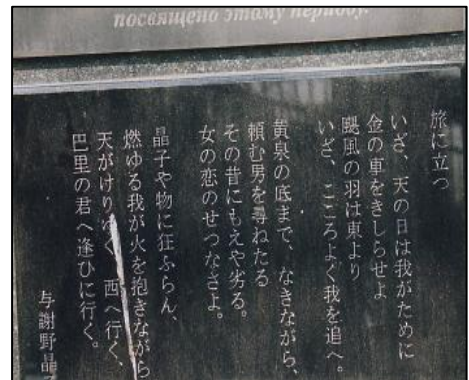 посвящено этому периоду.
旅に立つ
いざ、天の日は我がために
金の車をきしらせよ
颶風の羽は東より
いざ、こころよく我を追へ。
黄泉の底まで、なきながら、
頼む男を尋ねたる
その昔にもえや劣る。
女の恋のせつなさよ。
晶子や物に狂ふらん、
燃ゆる我が火を抱きながら
天がけりゆく、西へ行く、
巴里の君へ逢ひに行く。
与謝野晶子